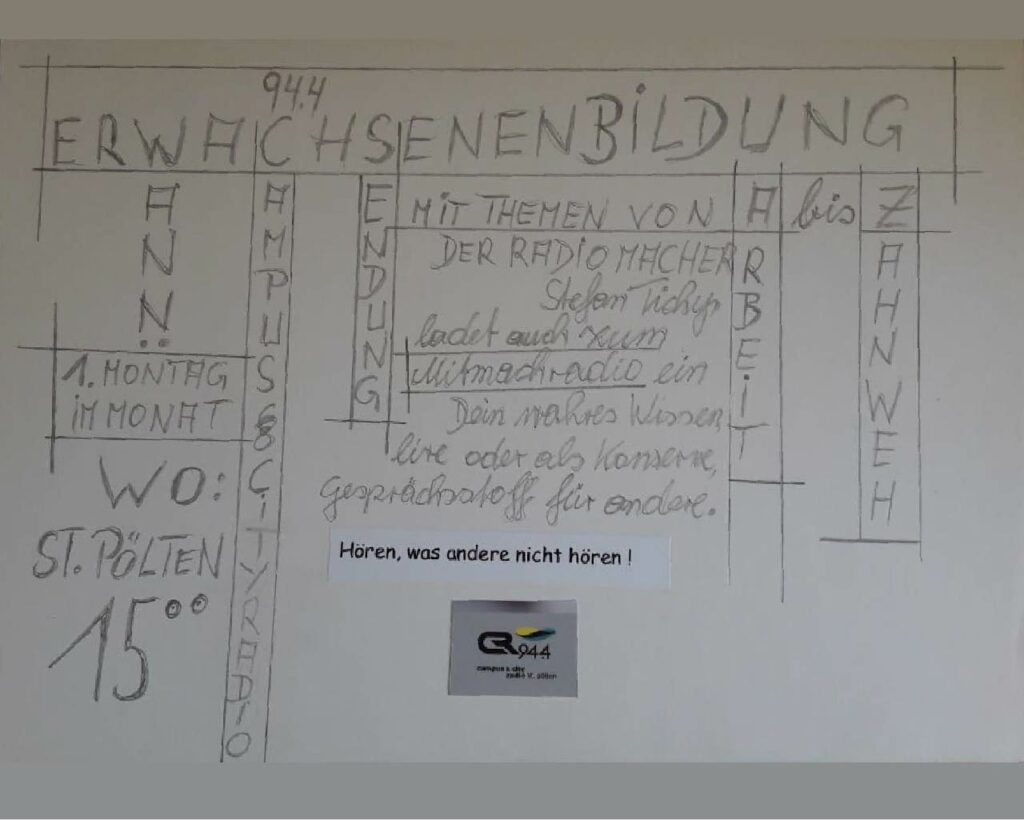 94.4
ERWACHSENENBILDUNG
ANN:
1. MONTAG
IM MONAT
WO:
ST. PÖLTEN
15⁰⁰
AMPUS & CITYRADIO
ENDUNG
MIT THEMEN VON A bis Z
DER RADIOMACHER
Stefan Tichy,
ladet auch zum
Mitmachradio ein
Dein wahres Wissen,
live oder als Konserve,
Gesprächsstoff für andere.
RBEIT
AHNWEH
Hören, was andere nicht hören !
CR 94.4
campus & city
radio st. pölten